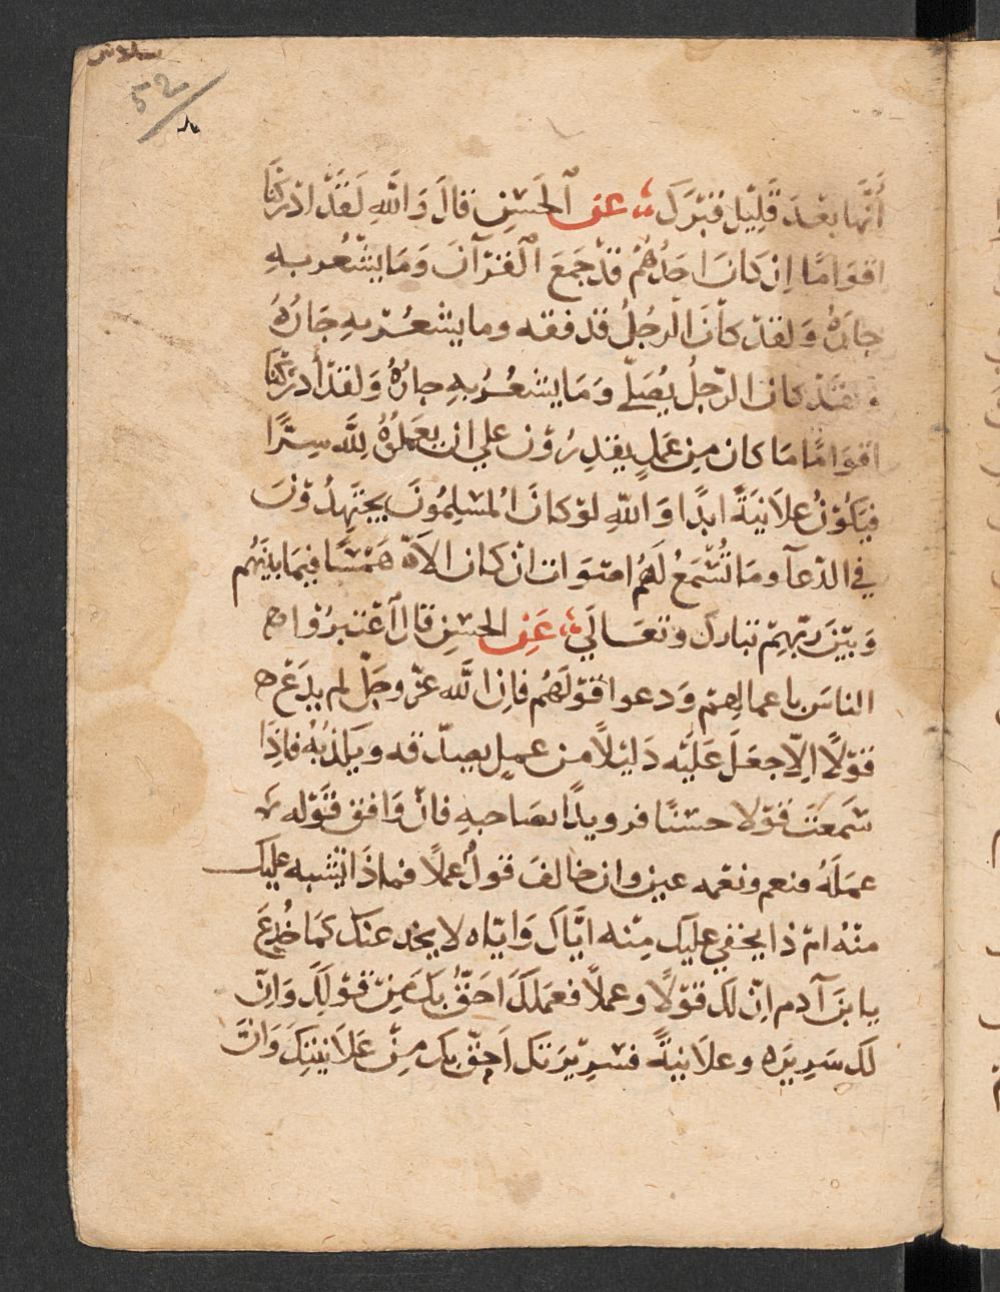 52
أَنَّها بَعْدَ قَلِيْلٍ قَبْرَكَ ؛ عَنِ ٱلحَسَنِ قالَ وَاللَّهِ لَقَدْ ادْرَكْنَا
اقوَامًا اِن كَانَ اَحَدُهُمْ قَدْ جَمَعَ ٱلقُرْآنَ وَمَا يَشْعُر بِهِ
جارُهُ وَلقدْ كانَ الرجُلُ قد فقه وما يشعُرْ بهِ جَارُهُ
وَلقَدْ كان الرّجلُ يُصَلّي وَمَا يشعُرُ بهِ جارُهُ وَلقَدْ أدرَكْنَا
اقوَامًا مَا كان مِن عَمَلٍ يقدِرُوْن علي ان يعَملُوْهُ لِلَّه سِرًّا
فيَكُوْنُ علاَنيَةً ابدًا وَاللهِ لوْ كانَ المُسْلِمُونَ يجتَهِدُوْنَ
في الدّعآ وما تُسْمَعُ لَهُم اصْوَات ان كان الاّ هَمْسًا فيمَا بينَهُم
وَبيْنَ ربّهِمْ تبارك وتعَالَي ؛ عَنِ الحسَنِ قال ٱعْتبرُوْا
الناسَ باعمالِهِمْ وَدعوا قوْلَهُم فاِن اللَّه عزّ وجَلّ لم يدَعْ
قوْلاً اِلاّ جعَلَ عَلَيْه دَليْلاً من عملٍ يصدّقه ويكذبُهُ فاِذَا
سَمعتَ قوْلا حسَنًا فرويدًا بصَاحبهِ فانْ وَافق قَوْله
عمَلَهُ فنعم ونعْمه عين وان خالفَ قولٌ عملاً فماذَا يشبه عليك
منْهُ امْ ذا يخفي عليك مِنْه ايَّاكَ وَايّاه لا يخدعنك كمَا خُدِعَ
يا بنَ آدم اِنّ لكَ قوْلاً وعملاً فعَملكَ اَحَقُّ بكَ مِنْ قوْلِكَ وَاِنّ
لك سَرِيرَه وعلاَنيةً فسَرِيْرَتك اَحقّ بك مِنْ عَلاَنيتِكَ وَانَّ